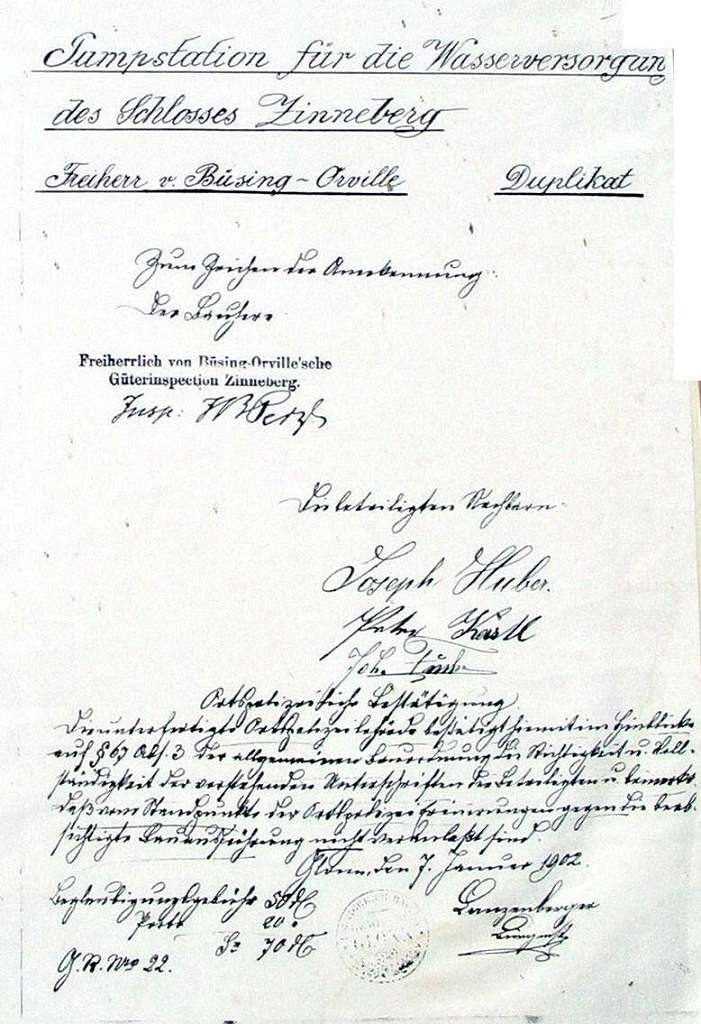 Pumpstation für die Wasserversorgun
des Schlosses Zinneberg
Freiherr v. Büsing-Orville Duplikat
Zum Zeichen der Anerkennung:
Der Bauherr:
Freiherrlich von Büsing-Orville'sche
Güterinspection Zinneberg.
Insp:
Die beteiligten Nachbarn:
Joseph Huber.
Peter Kastl
Joh.
Ortspolizeiliche Bestätigung
Die unterfertigte Ortspolizeibehörde bestätigt hiermit im Hinblicke
auf § 67 Abs. 3 der allgemeinen Bauordnung die Richtigkeit u. Voll-
ständigkeit der vorstehenden Unterschriften der Beteiligten u. bemerkt,
daß vom Standpunkte der Ortspolizei Erinnerungen gegen die beab-
sichtigte Bauausführung nicht veranlaßt sind.
Glonn, den 7. Januar 1902.
Beglaubigungsgebühr 50 ₰
Porto 20 "
Sa 70 ₰
Lanzenberger
Bürgmstr
G.R. Nro 22.